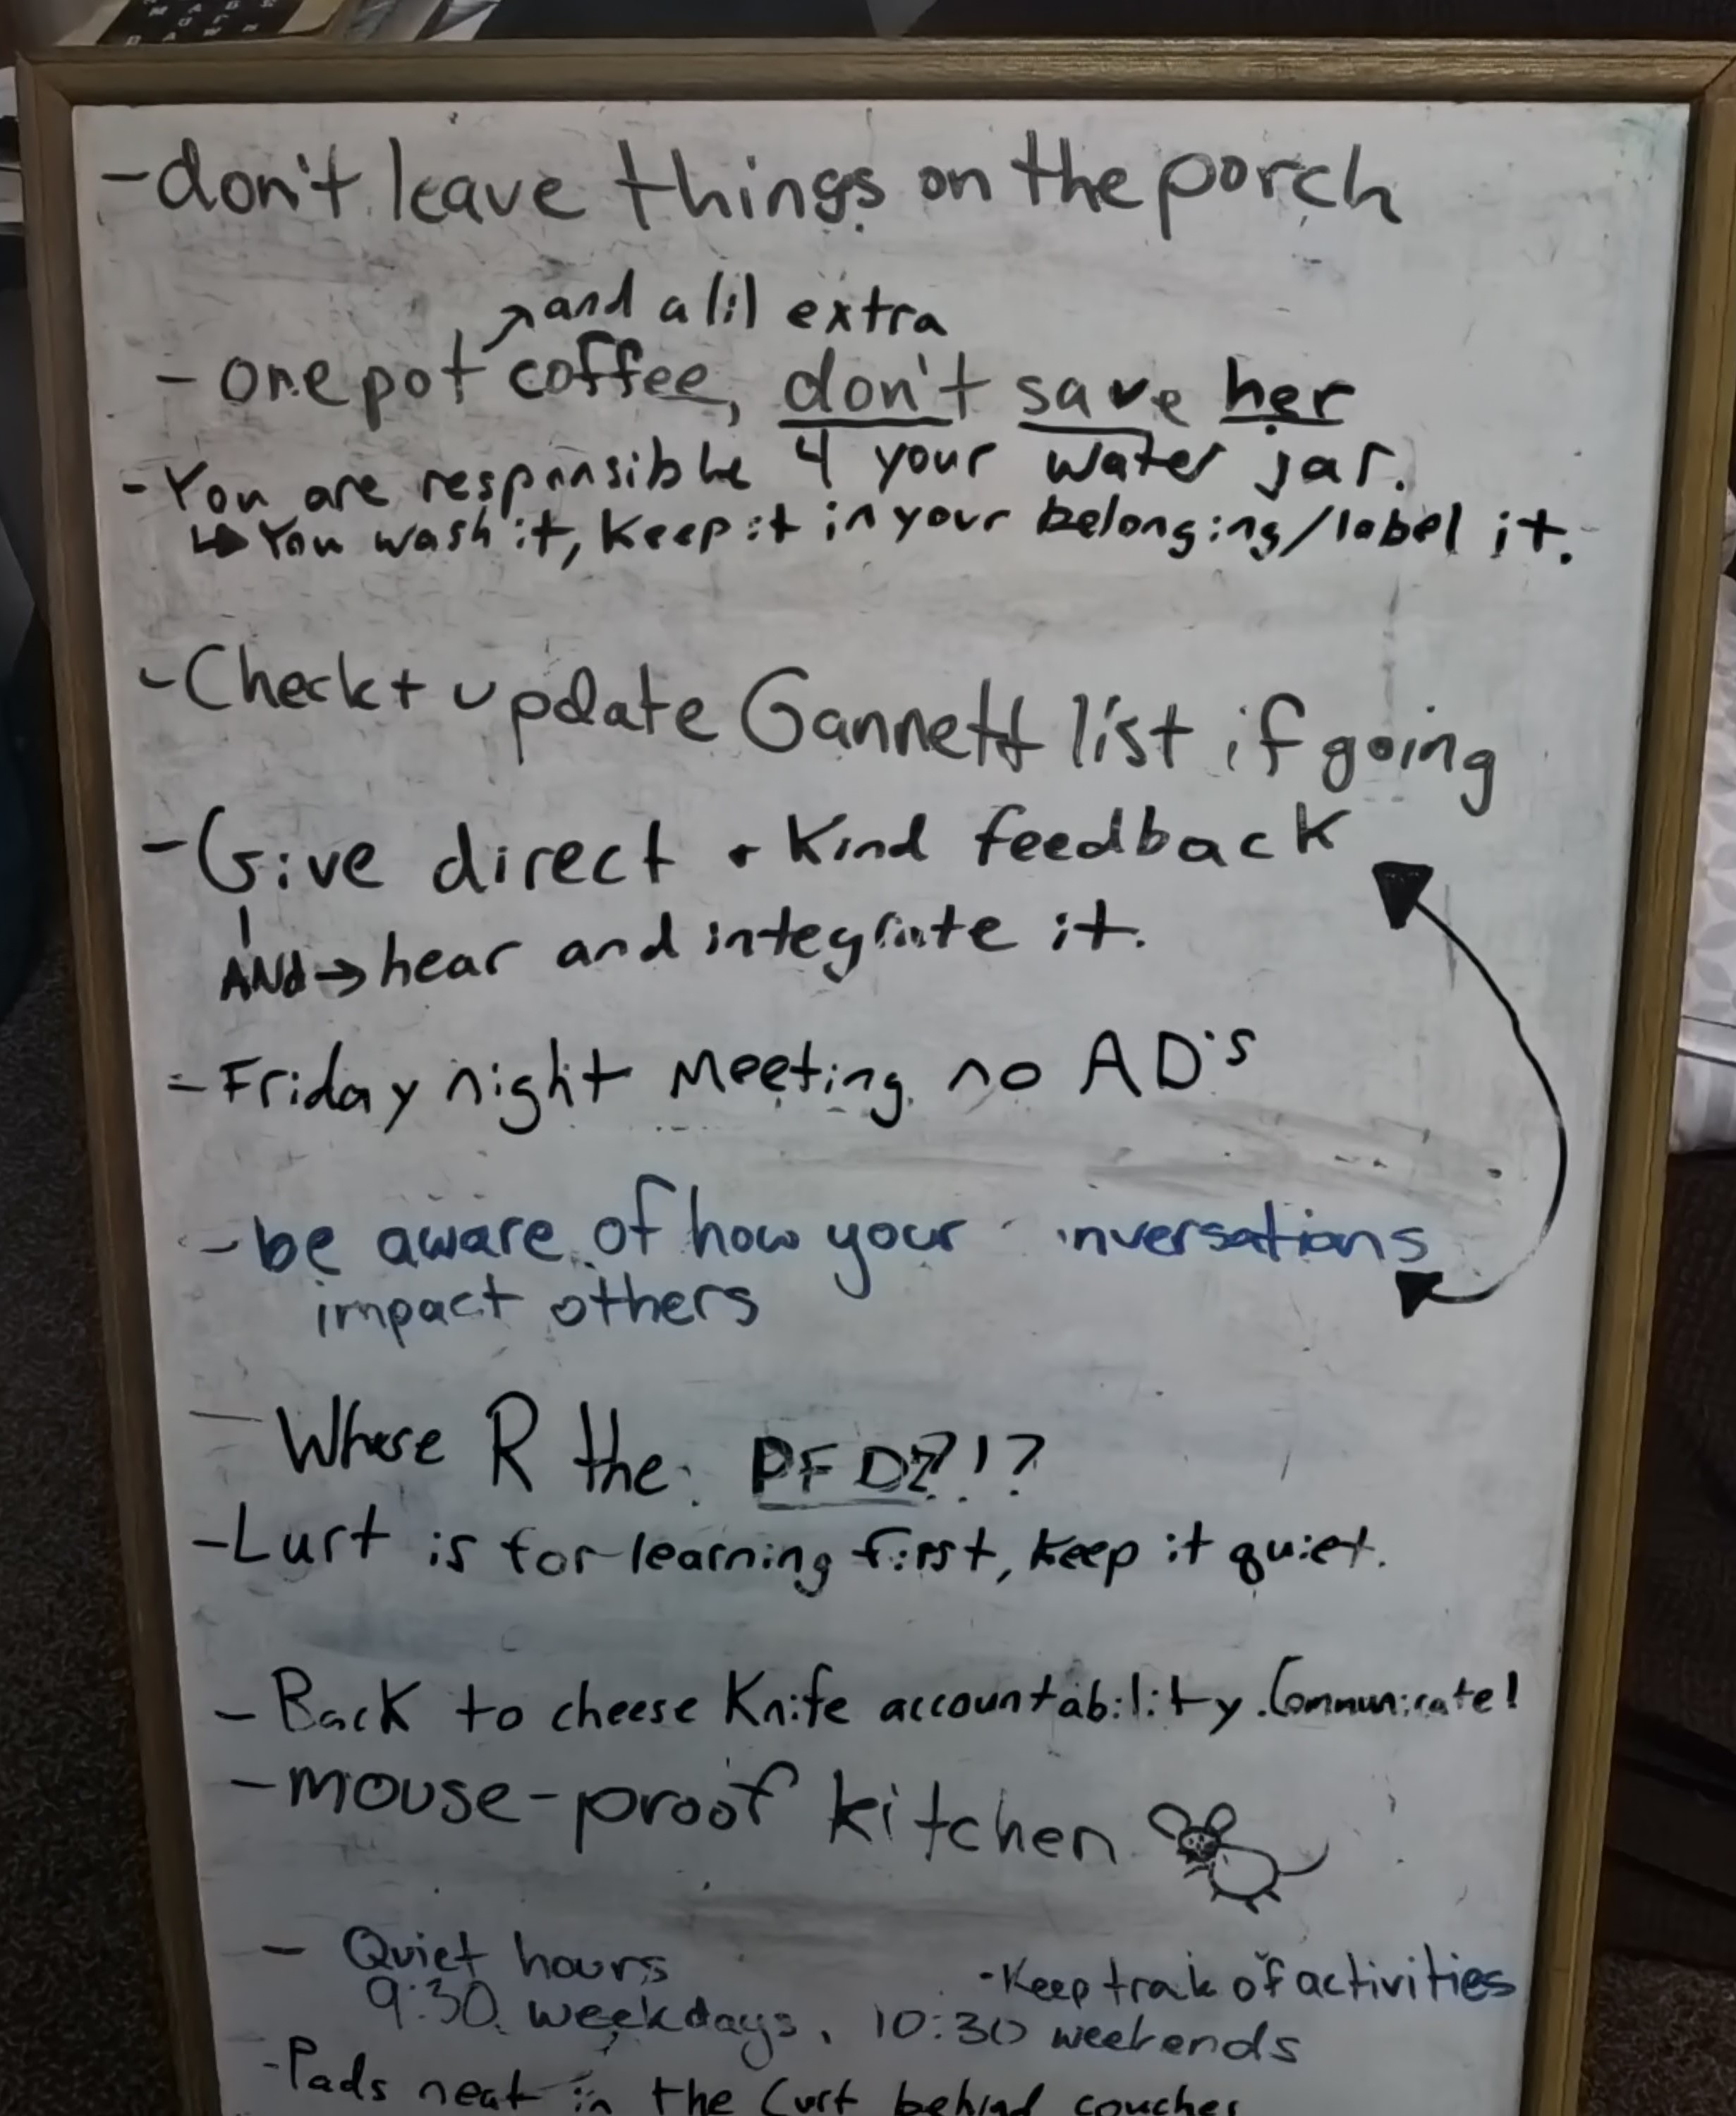 - don't leave things on the porch
↗ and a lil extra
- one pot coffee, don't save her
- You are responsible 4 your water jar.
↳ You wash it, Keep it in your belonging/label it.
- Check + update Gannett list if going
- Give direct + Kind feedback
ANd → hear and integrate it.
- Friday night Meeting no AD's
- be aware of how your nversations
impact others
- Where R the PFDz?!?
- Lurt is for learning first, keep it quiet.
- Back to cheese Knife accountability. Communicate!
- mouse-proof kitchen
- Quiet hours
- Keep trak of activities
9:30 weekdays, 10:30 weekends
- Pads neat in the Lurt behind couches